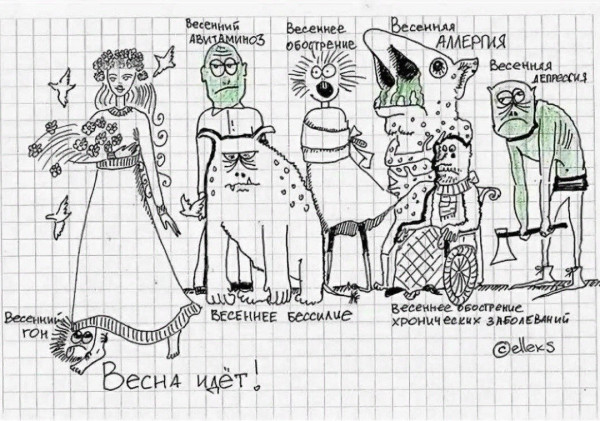 Весенний
АВИТАМИНОЗ
Весеннее
обострение
Весенняя
АЛЛЕРГИЯ
Весенняя
ДЕПРЕССИЯ
Весенний
ГОН
ВЕСЕННЕЕ БЕССИЛИЕ
ВЕСЕННЕЕ ОБОСТРЕНИЕ
ХРОНИЧЕСКИХ ЗАБОЛЕВАНИЙ
Весна идёт!
©elleks